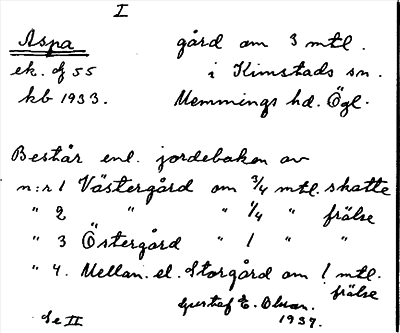 I
Aspa gård om 3 mtl.
ek. df 55 i Kimstads sn.
kb 1933. Memmings hd. Ögl.
Består enl. jordeboken av
n:r 1 Västergård om 3/4 mtl. skatte
" 2 " " 1/4 " frälse
" 3 Östergård " 1 " "
" 4. Mellan. el. Storgård om 1 mtl.
frälse
Gustaf E. Olson.
Se II 1937.